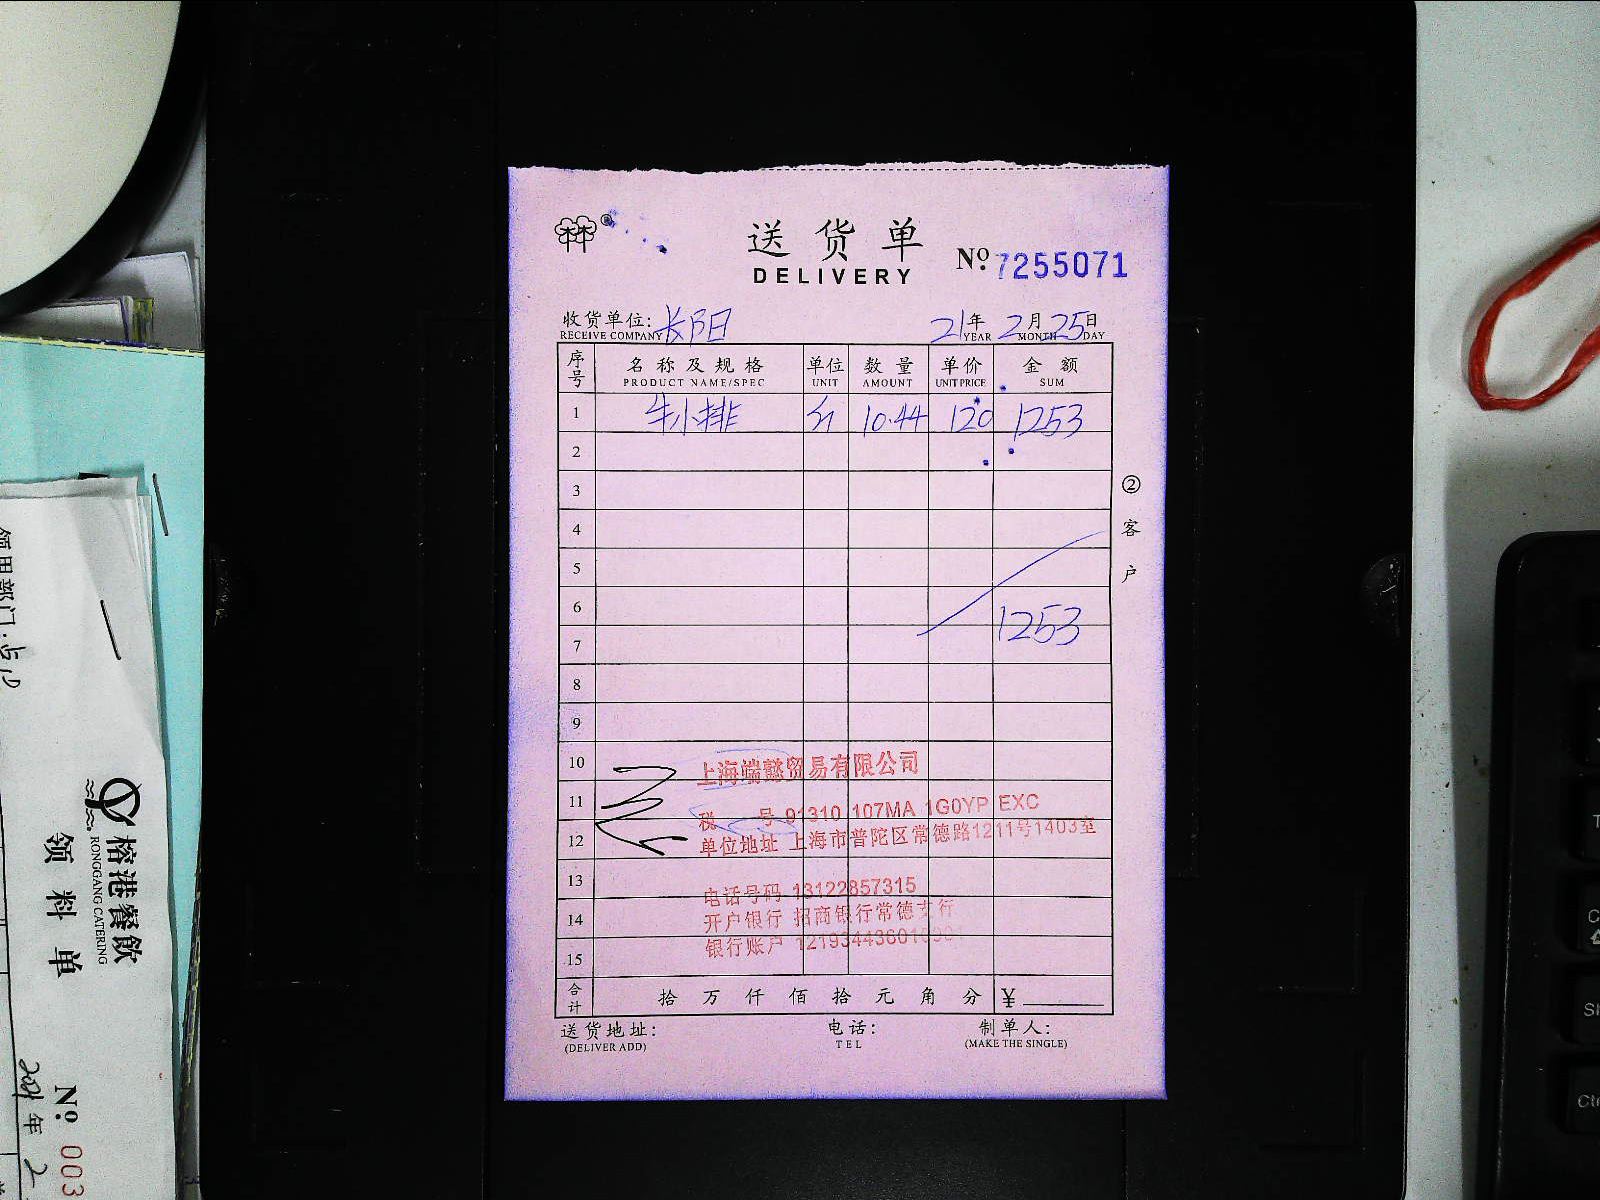 送货单
DELIVERY
No. 7255071
收货单位: 长阳
RECEIVE COMPANY
21年 2月 25日
YEAR MONTH DAY
序号 名称及规格 单位 数量 单价 金额
PRODUCT NAME/SPEC UNIT AMOUNT UNIT PRICE SUM
1 牛小排 斤 10.44 120 1253
2
3
4
5
6
1253
7
8
9
10
11
12
13
14
15
上海端懿贸易有限公司
税 号 91310 107MA 1G0YP EXC
单位地址 上海市普陀区常德路1211号1403室
电话号码 13122857315
开户银行 招商银行常德支行
银行账户
合计 拾 万 仟 佰 拾 元 角 分 ¥
送货地址: 电话: 制单人:
(DELIVER ADD) TEL (MAKE THE SINGLE)
② 客户
榕港餐飲
RONGGANG CATERING
领料单
No. 003
2021年 2